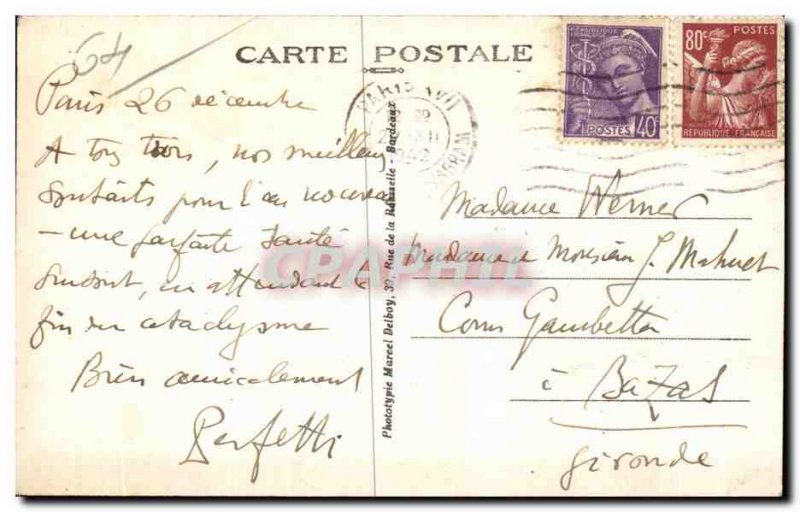 64
CARTE POSTALE
Paris 26 décembre
A tous trois, nos meilleurs
souhaits pour l'an nouveau
- une parfaite santé
surtout, en attendant la
fin du cataclysme
Bien amicalement
Perfetti
Phototypie Marcel Delboy, 39, Rue de la Rousselle - Bordeaux
PARIS XVII
REPUBLIQUE FRANÇAISE
POSTES 40
80c POSTES
REPUBLIQUE FRANÇAISE
Madame Werner
Madame et Monsieur J. Mahuet
Cours Gambetta
à Bazas
Gironde
CPAPHIL